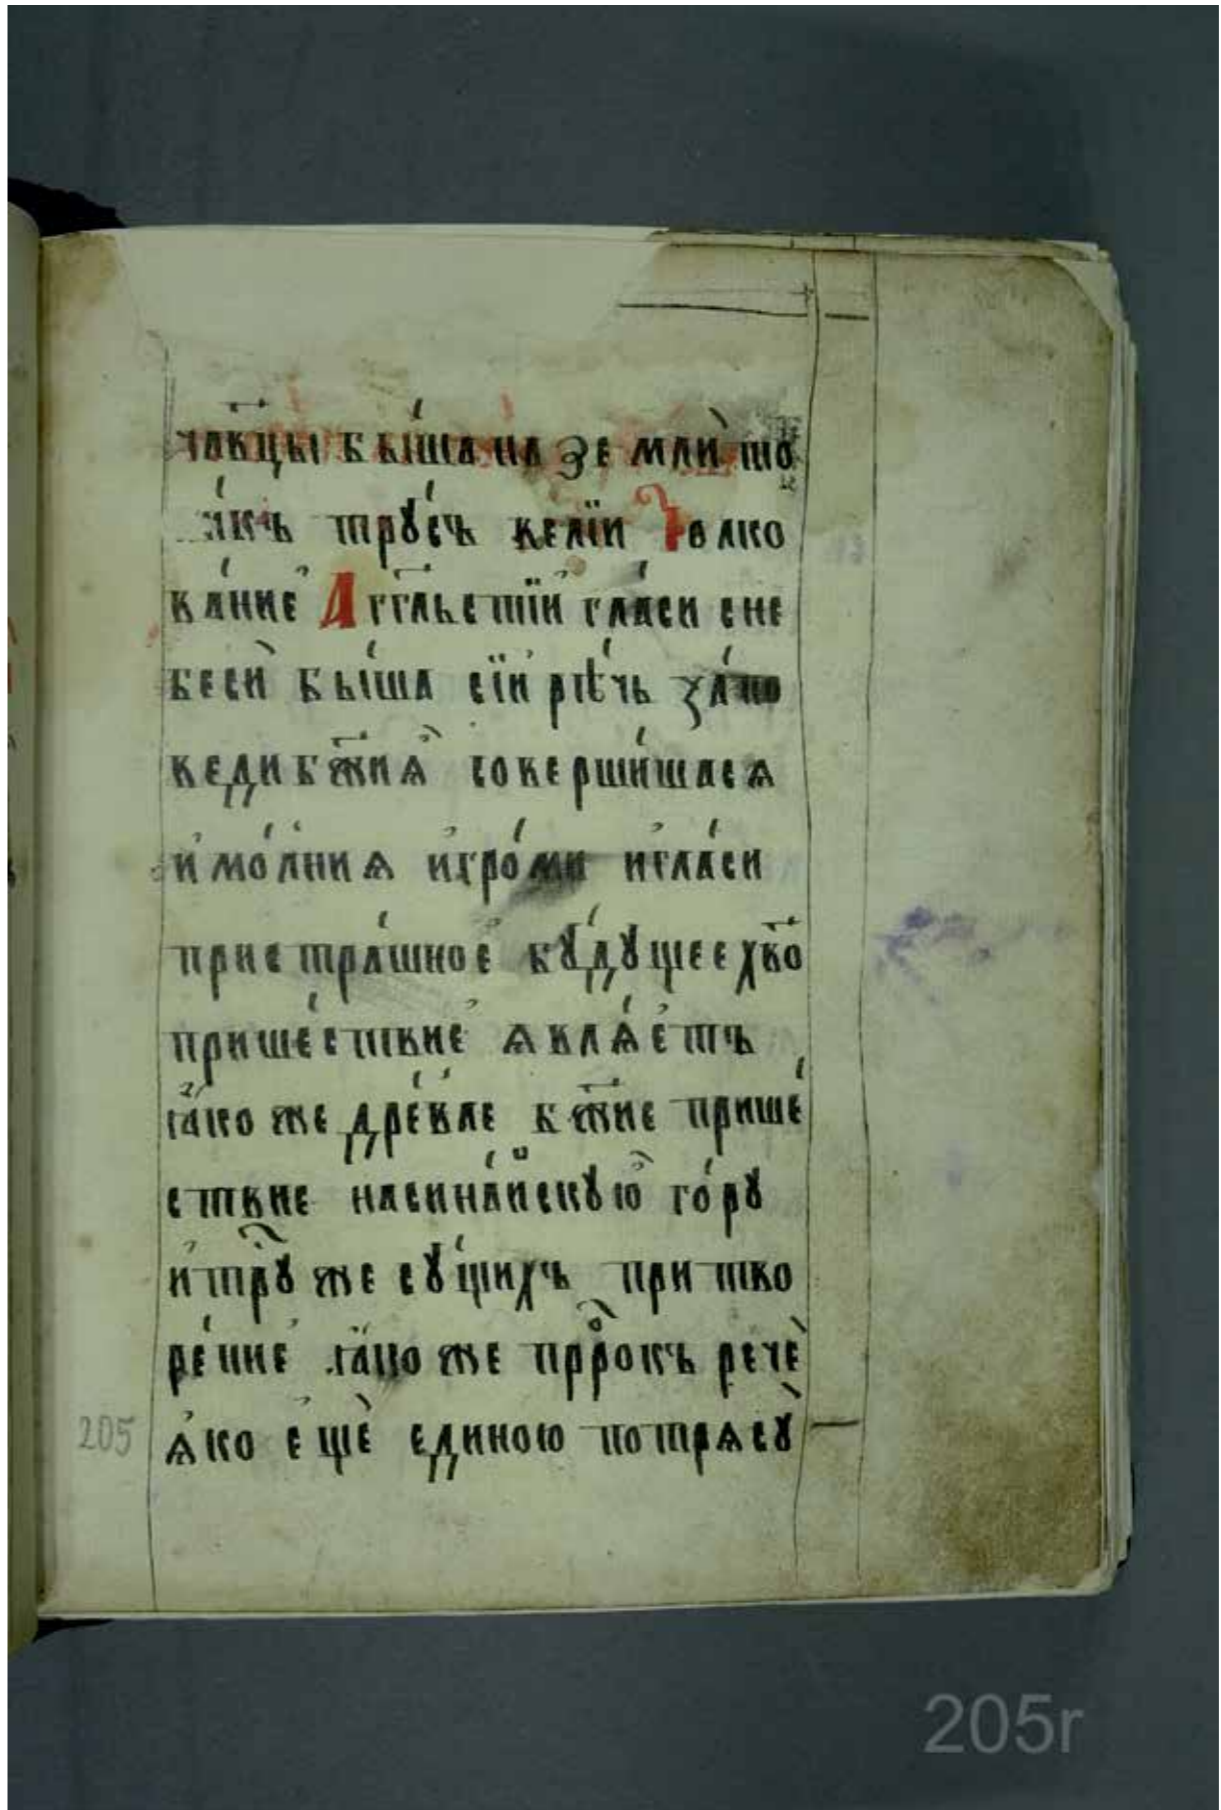 члв҃цы бы́ша на землѝ то
ли́къ тру́съ велїи Толко
ва́ние А҆гг҃льстїи гла́си с не
беси̂ бы́ша сїи рѣ́чь за́по
веди бж҃ия̂ соверши́шася
и҆ мо́лния и҆ гро́ми и҆ гла́си
пристра́шное бу́дущее хв҃о
прише́ствие ѧвлѧ́етъ
ꙗ҆́коже дре́вле бж҃ие прише́
ствие на сина́йскую го́ру
и҆ тру̂ же су́щихъ при тво
ре́ние ꙗ҆коже прⷪ҇рокъ рече̂
ѧ҆ко е҆ще̂ единою потрѧсу̀
205
205r